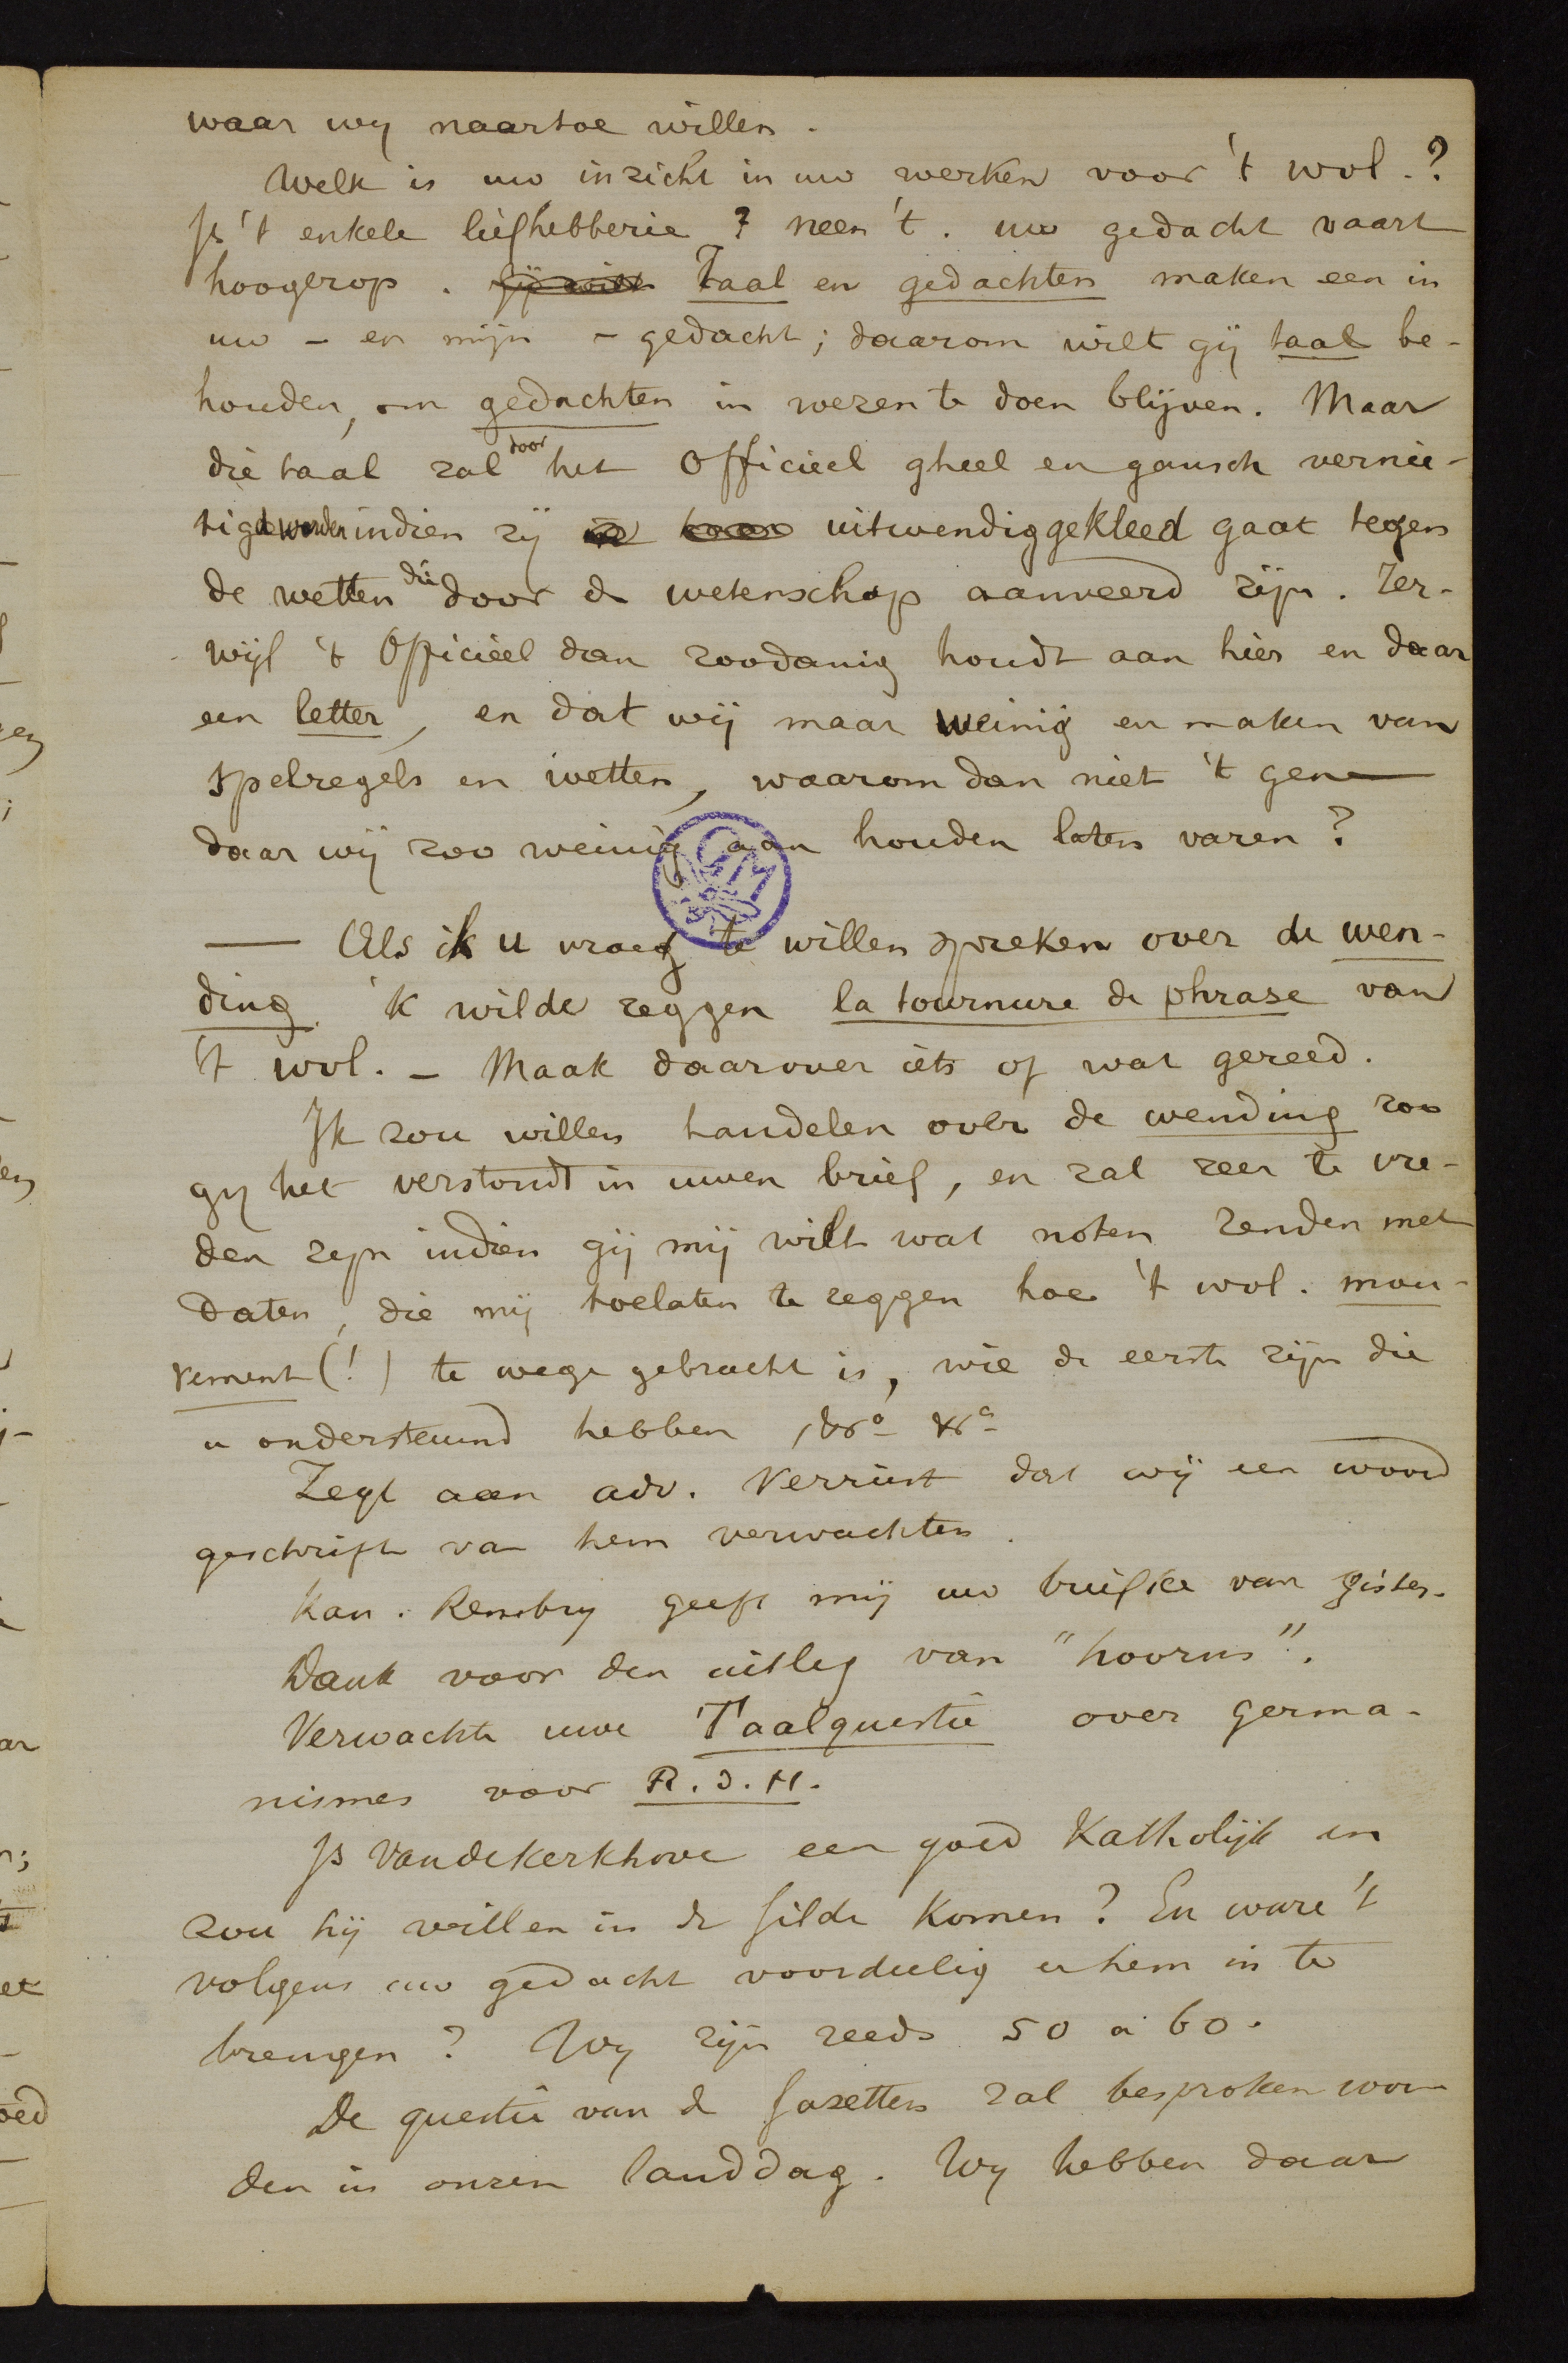 waar wy naartoe willen.
Welk is uw inzicht in uw werken voor 't wvl.?
Is 't enkele liefhebberie? neen 't. uw gedacht vaart
hoogerop. Gij wilt Taal en gedachten maken een in
uw - en mijn - gedacht; daarom wilt gij taal be-
houden, om gedachten in wezen te doen blijven. Maar
die taal zal door het Officieel gheel en gansch vernie-
tigd worden indien zij uitwendig gekleed gaat tegen
de wetten die door de wetenschap aanveerd zijn. Ter-
wijl 't Officieel dan zoodanig houdt aan hier en daar
een letter, en dat wij maar weinig en maken van
spelregels en wetten, waarom dan niet 't gene
daar wij zoo weinig aan houden laten varen?
GM
— Als ik u vraeg te willen spreken over de wen-
ding 'k wilde zeggen la tournure de phrase van
't wvl. - Maak daarover iets of wat gereed.
Ik zou willen handelen over de wending zoo
gy het verstondt in uwen brief, en zal zeer te vre-
den zijn indien gij mij wilt wat noten zenden met
daten, die mij toelaten te zeggen hoe 't wvl. mou-
vement (!) te wege gebracht is, wie de eerste zijn die
u ondersteund hebben, &ca &ca
Zegt aan adv. Verriest dat wij een woord
geschrift van hem verwachten.
Kan. Rembry geeft mij uw briefke van gister.
Dank voor den uitleg van "hoorns".
Verwachte uwe Taalquestie over germa-
nismes voor R.d.H.
Is Vandekerkhove een goed Katholijk en
zou hij willen in de Gilde komen? En ware 't
volgens uw gedacht voordeelig u hem in te
brengen? Wy zijn reeds 50 a 60.
De questie van de Gazetten zal besproken wor-
den in onzen landdag. Wy hebben daar